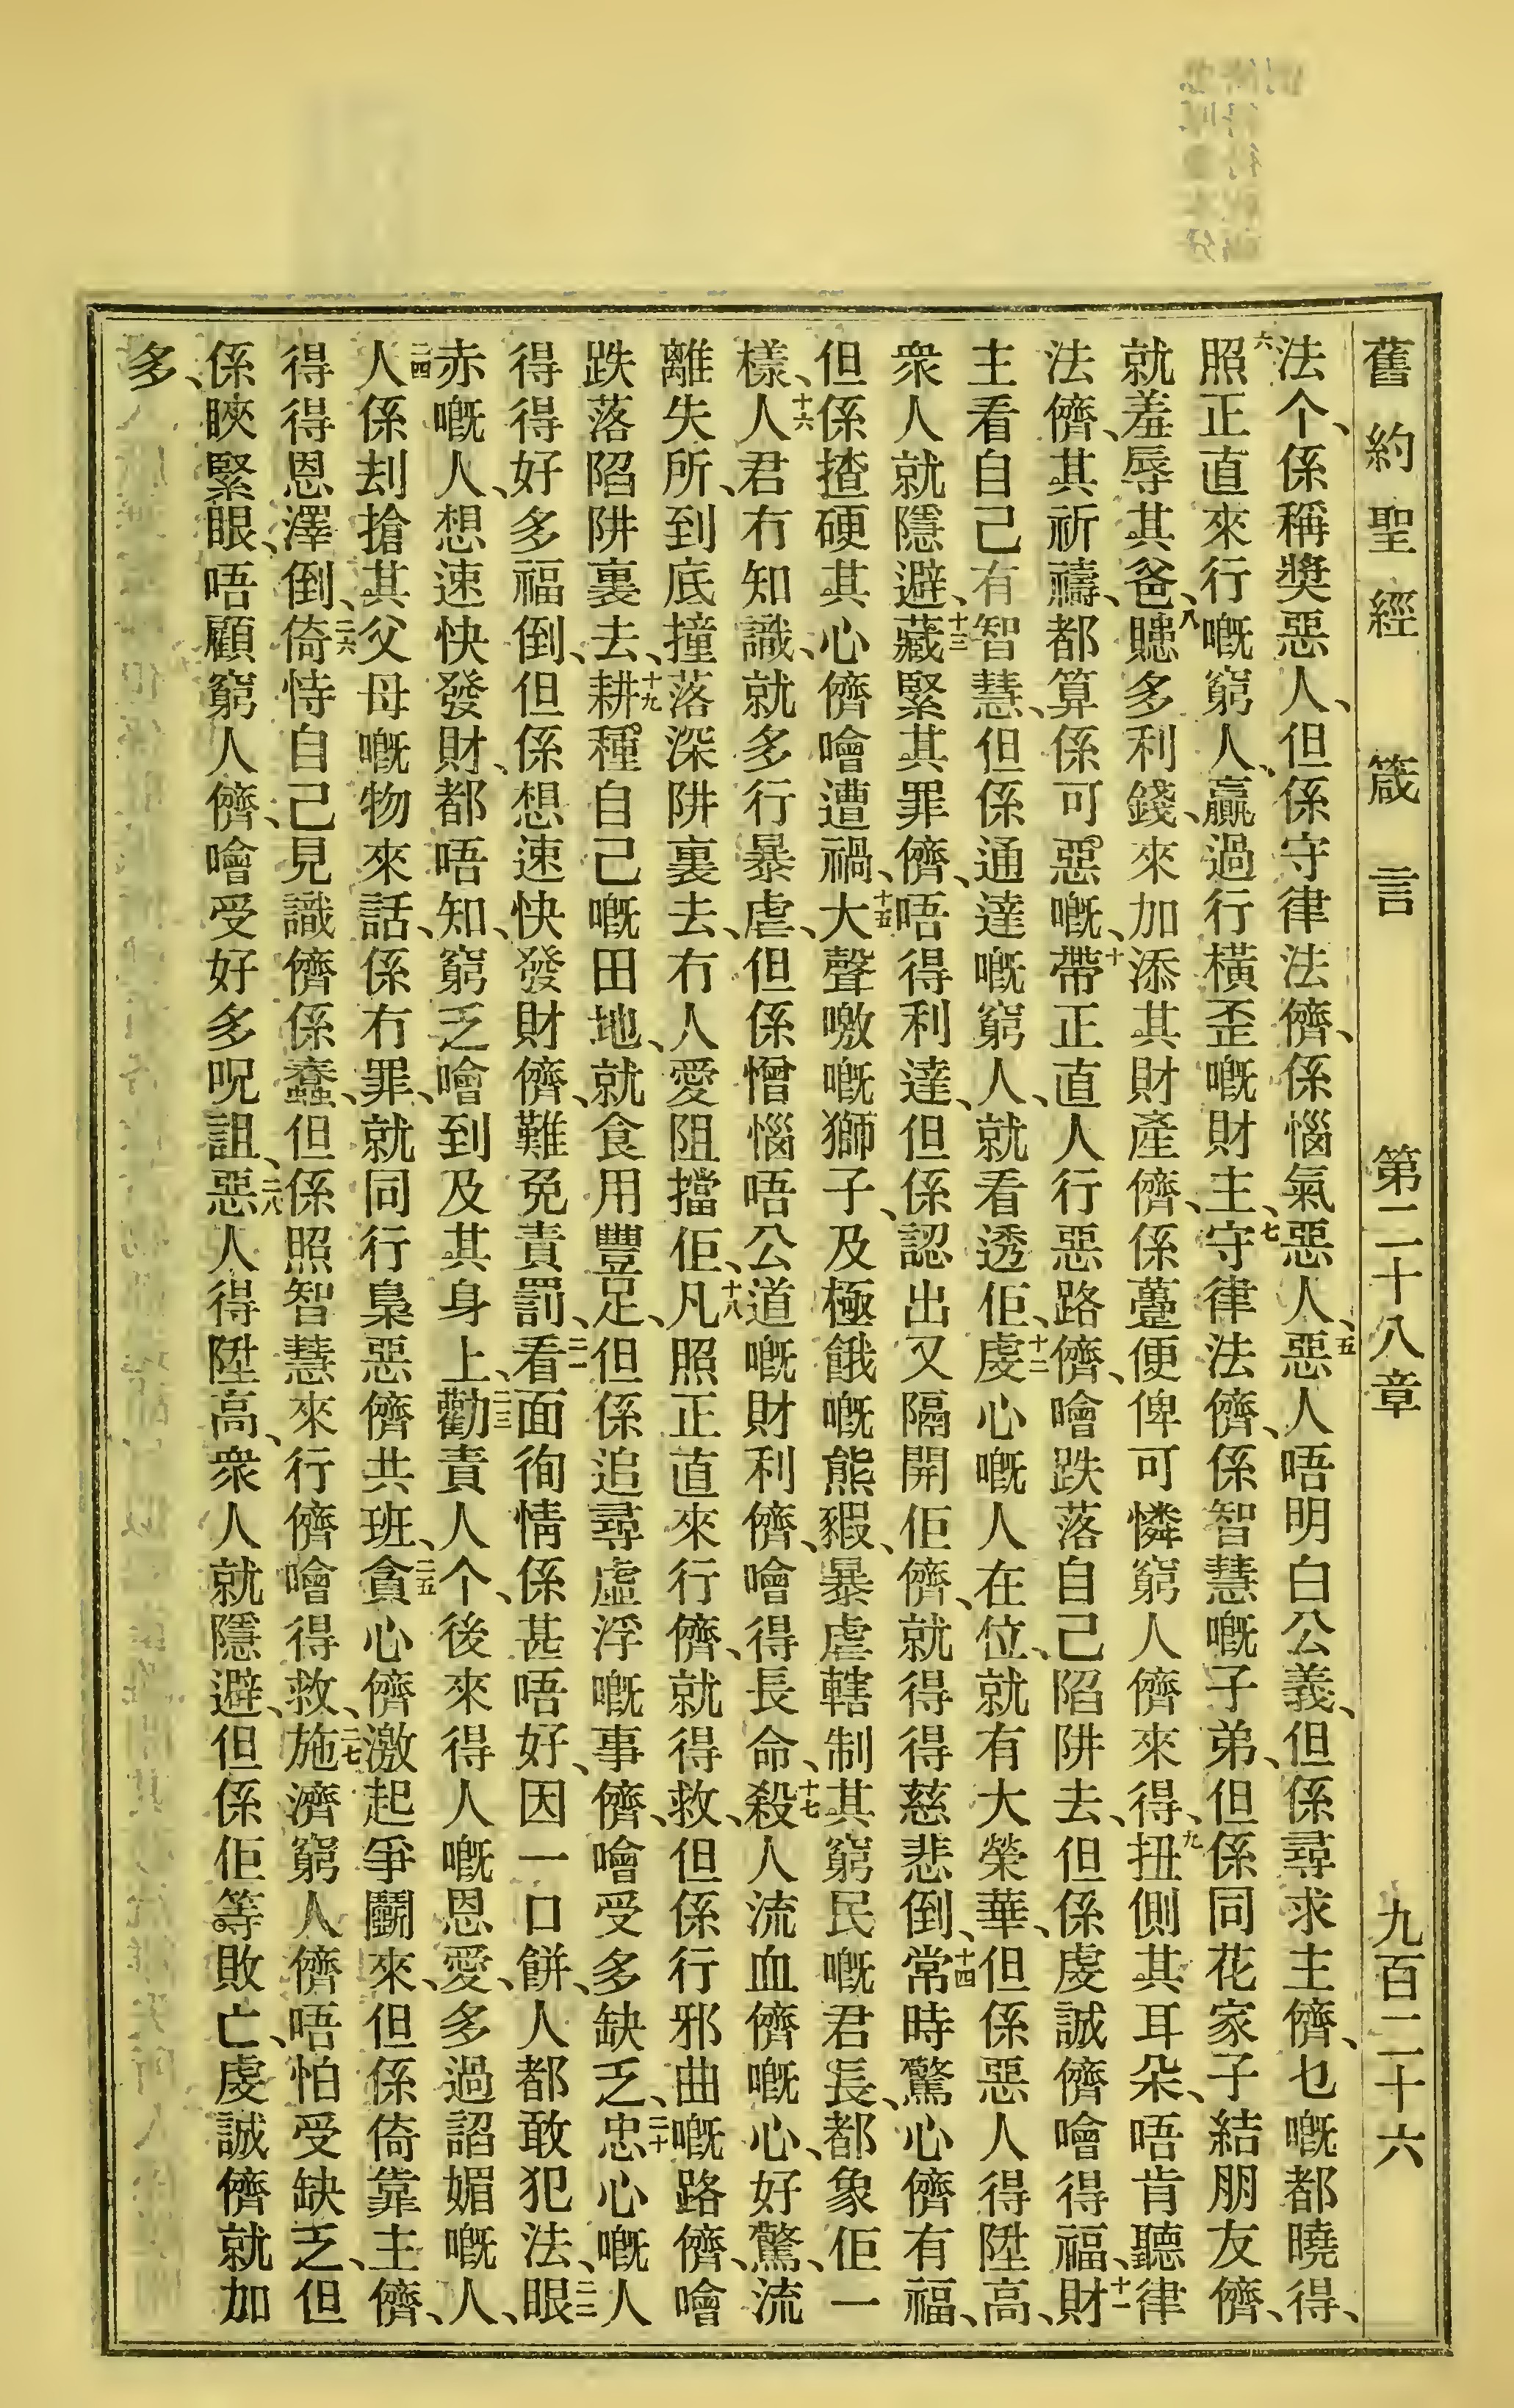 舊約聖經 箴言 第二十八章 九百二十六
法个、係稱獎惡人、但係守律法儕、係惱氣惡人、五惡人唔明白公義、但係尋求主儕、乜嘅都曉得、
六照正直來行嘅窮人、贏過行橫歪嘅財主、七守律法儕、係智慧嘅子弟、但係同花家子結朋友儕、
就羞辱其爸、八賺多利錢、來加添其財產儕、係躉便俾可憐窮人儕來得、九扭側其耳朵、唔肯聽律
法儕、其祈禱、都算係可惡嘅、十帶正直人行惡路儕、噲跌落自己陷阱去、但係虔誠儕噲得福、十一財
主看自己有智慧、但係通達嘅窮人、就看透佢、十二虔心嘅人在位、就有大榮華、但係惡人得陞高、
衆人就隱避、十三藏緊其罪儕、唔得利達、但係認出又隔開佢儕、就得得慈悲倒、十四常時驚心儕有福、
但係揸硬其心儕噲遭禍、十五大聲噭嘅獅子、及極餓嘅熊豭、暴虐轄制其窮民嘅君長、都象佢一
樣、十六人君冇知識、就多行暴虐、但係憎惱唔公道嘅財利儕、噲得長命、十七殺人流血儕嘅心、好驚、流
離失所、到底撞落深阱裏去、冇人愛阻擋佢、十八凡照正直來行儕、就得救、但係行邪曲嘅路儕、噲
跌落陷阱裏去、十九耕種自己嘅田地、就食用豐足、但係追尋虛浮嘅事儕、噲受多缺乏、二十忠心嘅人
得得好多福倒、但係想速快發財儕、難免責罰、二一看面徇情係甚唔好、因一口餅、人都敢犯法、二二眼
赤嘅人、想速快發財、都唔知、窮乏噲到及其身上、二三勸責人个、後來得人嘅恩愛、多過諂媚嘅人、
二四人係刦搶其父母嘅物來話、係冇罪、就同行梟惡儕共班、二五貪心儕激起爭鬭來、但係倚靠主儕、
得得恩澤倒、二六倚恃自己見識儕係蠢、但係照智慧來行儕噲得救、二七施濟窮人儕唔怕受缺乏、但
係䀹緊眼、唔顧窮人儕、噲受好多呪詛、二八惡人得陞高、衆人就隱避、但係佢等敗亡、虔誠儕就加
多、